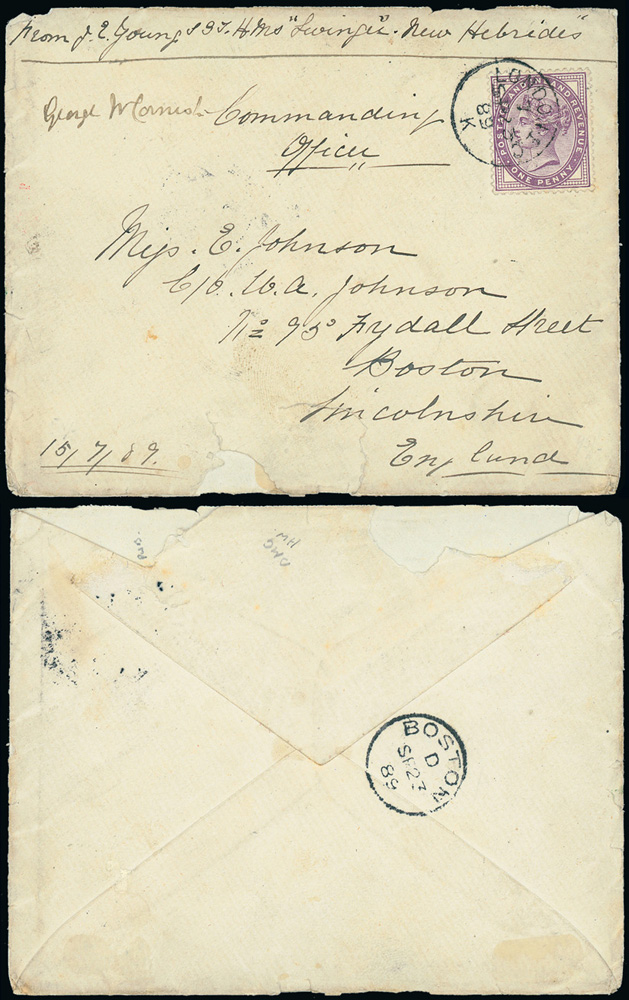 From J. E. Young S S T. HMS "Swinger". New Hebrides"
George W Cornish Commanding
Officer
LONDON
K
89
POSTAGE AND INLAND REVENUE
ONE PENNY
Miss. E. Johnson
C/o. W. A. Johnson
No 95 Fydall Street
Boston
Lincolnshire
England
15/7/89.
BOSTON
D
SP 23
89